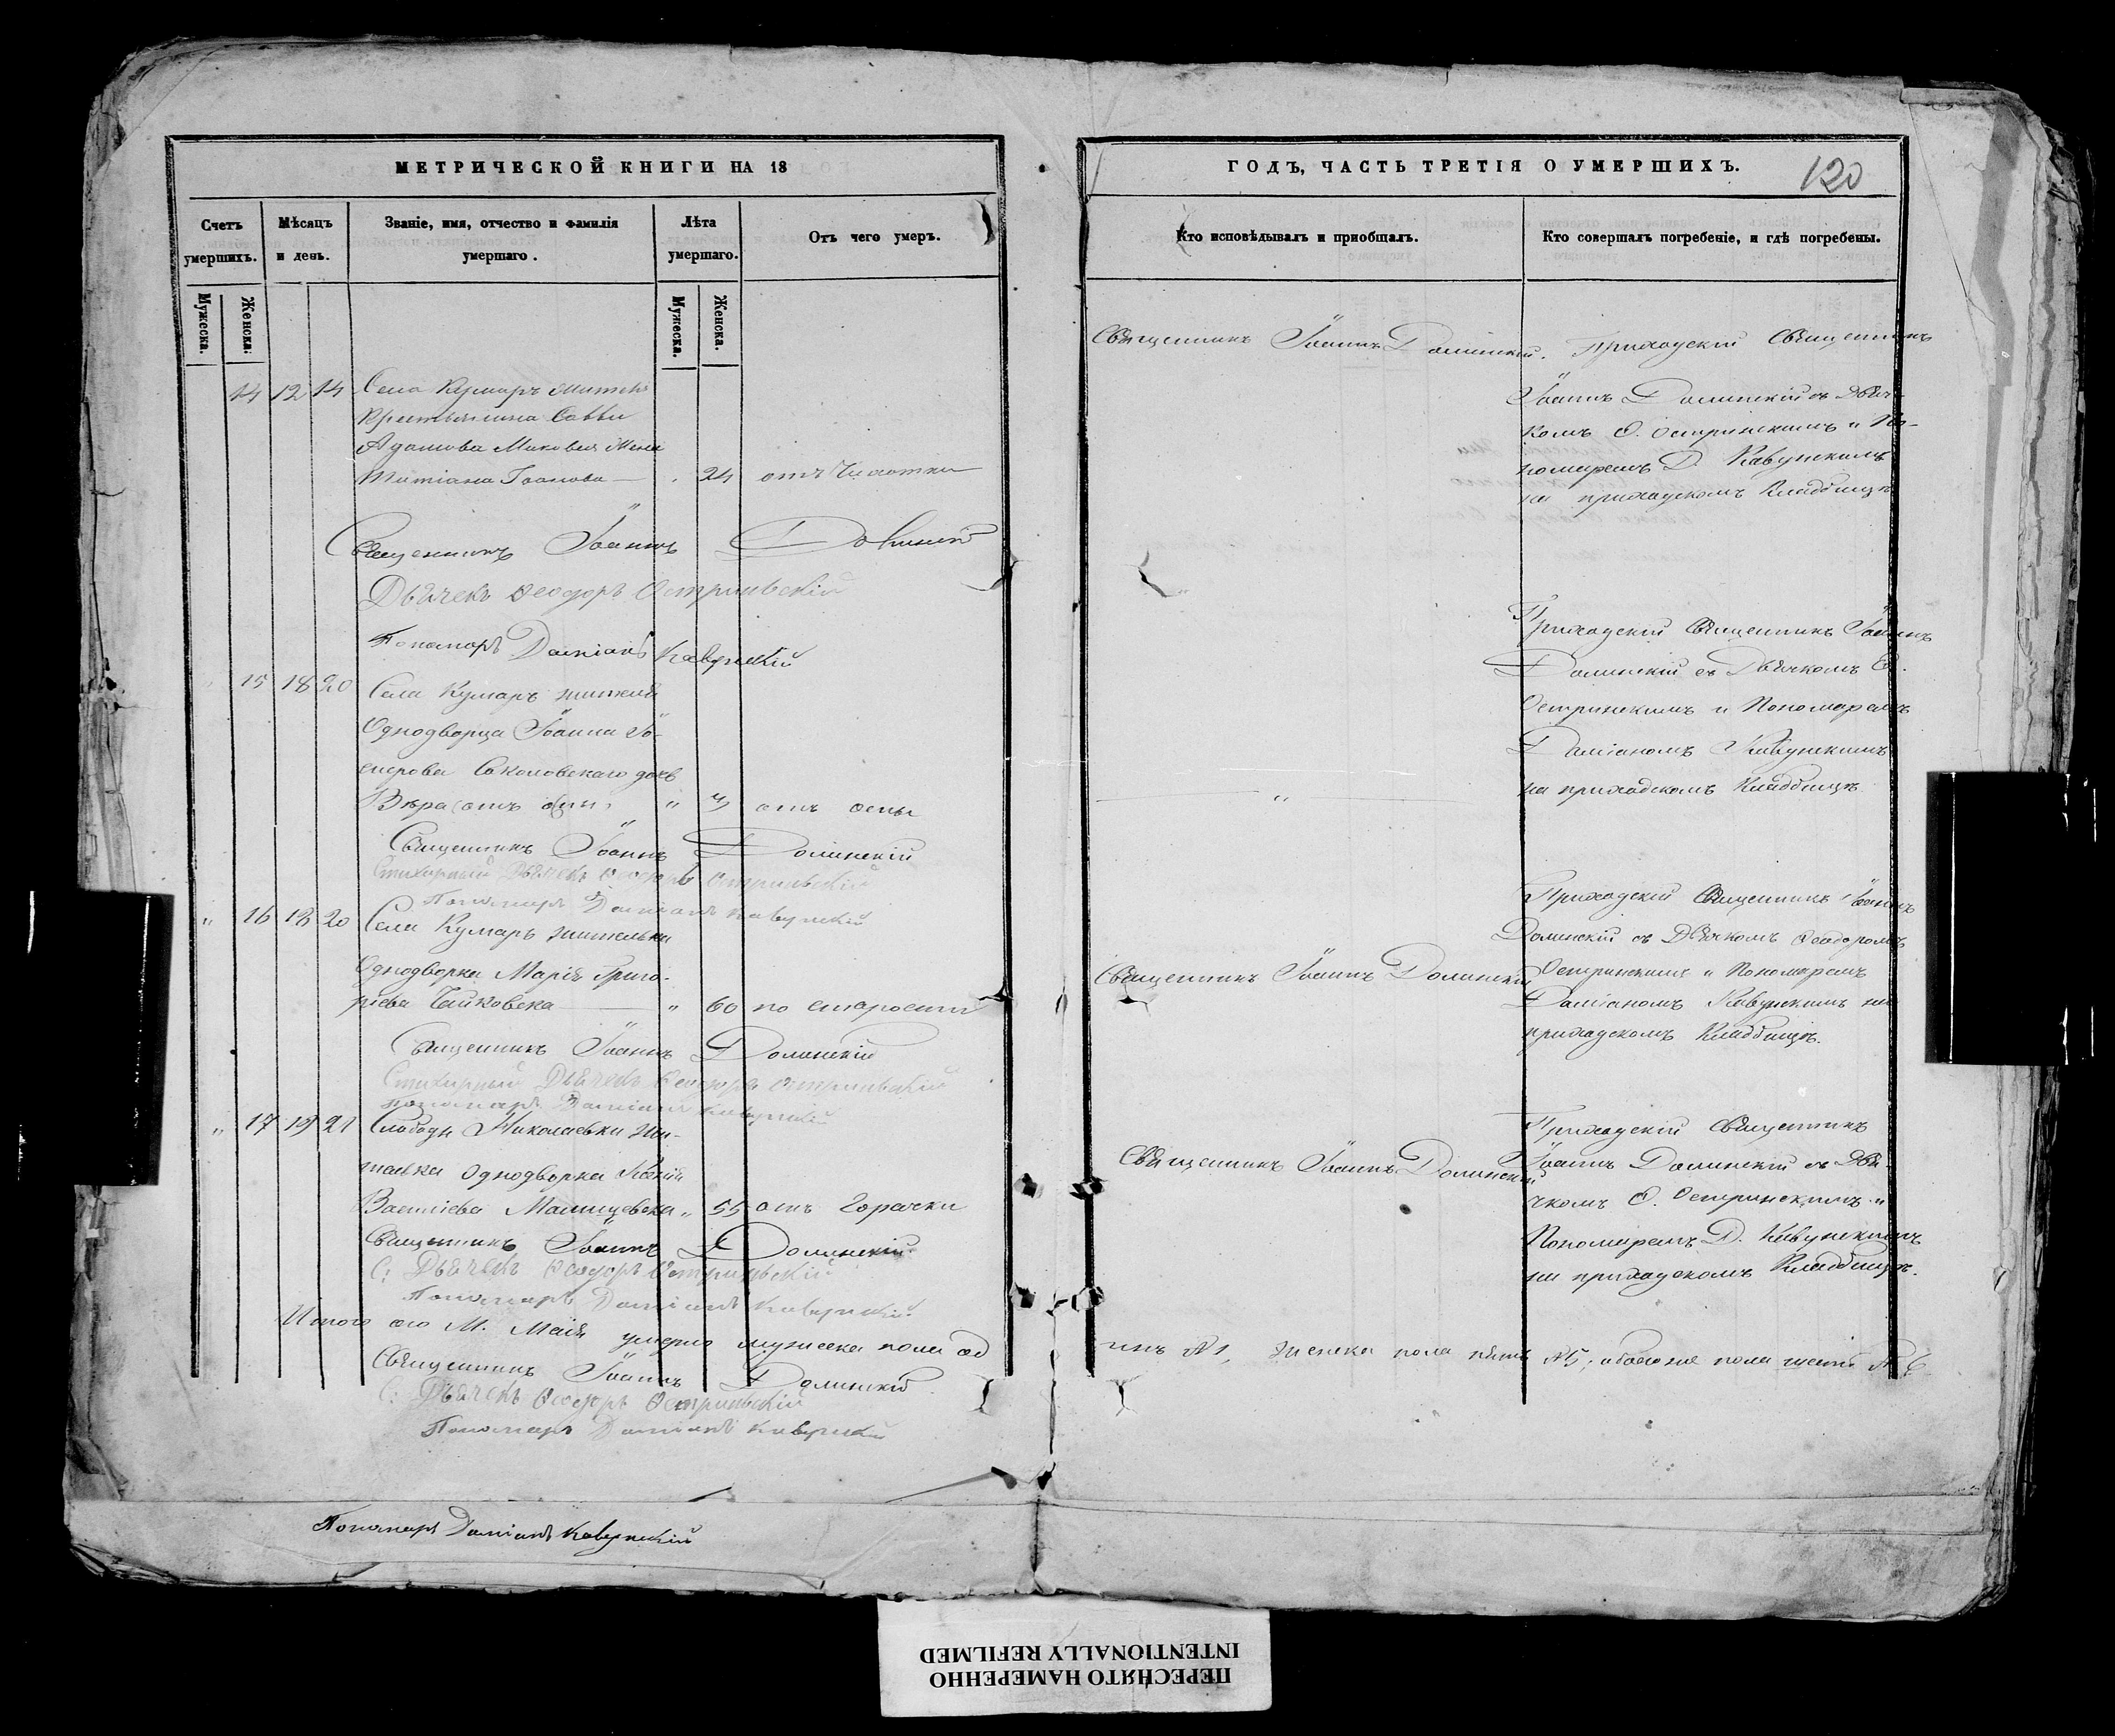 МЕТРИЧЕСКОЙ КНИГИ НА 18
Счетъ умершихъ.
Мѣсяцъ и день.
Званіе, имя, отчество и фамилія умершаго.
Лѣта умершаго.
Отъ чего умеръ.
Мужеска.
Женска.
Мужеска.
Женска.
14 12 14 Села Кумаръ жителя
Крестьянина Саввы
Адамова жена
Татіана Іванова 24 отъ Чахотки
Священникъ Іоаннъ Долинскій
Дьячекъ Ѳеодоръ Остриньскій
Пономаръ Даміанъ Кавунскій
15 18 20 Села Кумаръ жителя
Однодворца Іоанна Іо-
сифова Соколовскаго дочь
Вѣра отъ оспы
Священникъ Іоаннъ Долинскій
Стихарный Дьячекъ Ѳеодоръ Остриньскій
Пономаръ Даміанъ Кавунскій
" 16 18 20 Села Кумаръ жителька
Однодворка Марія Григо-
ріева Чайковска " 60 по старости
Священникъ Іоаннъ Долинскій
Стихарный Дьячекъ Ѳеодоръ Остриньскій
Пономаръ Даміанъ Кавунскій
" 17 19 21 Слободы Николаевки жи-
телька Однодворка
Василіева " 55 отъ Горячки
Священникъ Іоаннъ Долинскій
С: Дьячекъ Ѳеодоръ Остриньскій
Пономаръ Даміанъ Кавунскій
Итого сего М. Маія умерло мужеска пола од
Священникъ Іоаннъ Долинскій
С: Дьячекъ Ѳеодоръ Остриньскій
Пономаръ Даміанъ Кавунскій
Пономаръ Даміанъ Кавунскій
ГОДЪ, ЧАСТЬ ТРЕТІЯ О УМЕРШИХЪ.
120
Кто исповѣдывалъ и приобщалъ.
Кто совершалъ погребеніе, и гдѣ погребены.
Священникъ Іоаннъ Долинскій.
Приходскій Священникъ
Іоаннъ Долинскій съ Дьяч-
комъ Ѳ. Остринскимъ и По-
номаремъ Д. Кавунскимъ
на приходскомъ Кладбищѣ
"
Приходскій Священникъ Іоаннъ
Долинскій съ Дьячкомъ Ѳ.
Остринскимъ и Пономаремъ
Даміаномъ Кавунскимъ
на приходскомъ Кладбищѣ
Священникъ Іоаннъ Долинскій
Приходскій Священникъ Іоаннъ
Долинскій съ Дьячкомъ Ѳеодоромъ
Остринскимъ и Пономаремъ
Даміаномъ Кавунскимъ на
приходскомъ Кладбищѣ.
Священникъ Іоаннъ Долинскій
Приходскій Священникъ
Іоаннъ Долинскій съ Дья-
чкомъ Ѳ. Остринскимъ и
Пономаремъ Д. Кавунскимъ
на приходскомъ Кладбищѣ.
инъ №1, женска пола пять №5, обоего пола шесть № 6
ПЕРЕСНЯТО НАМЕРЕННО
INTENTIONALLY REFILMED